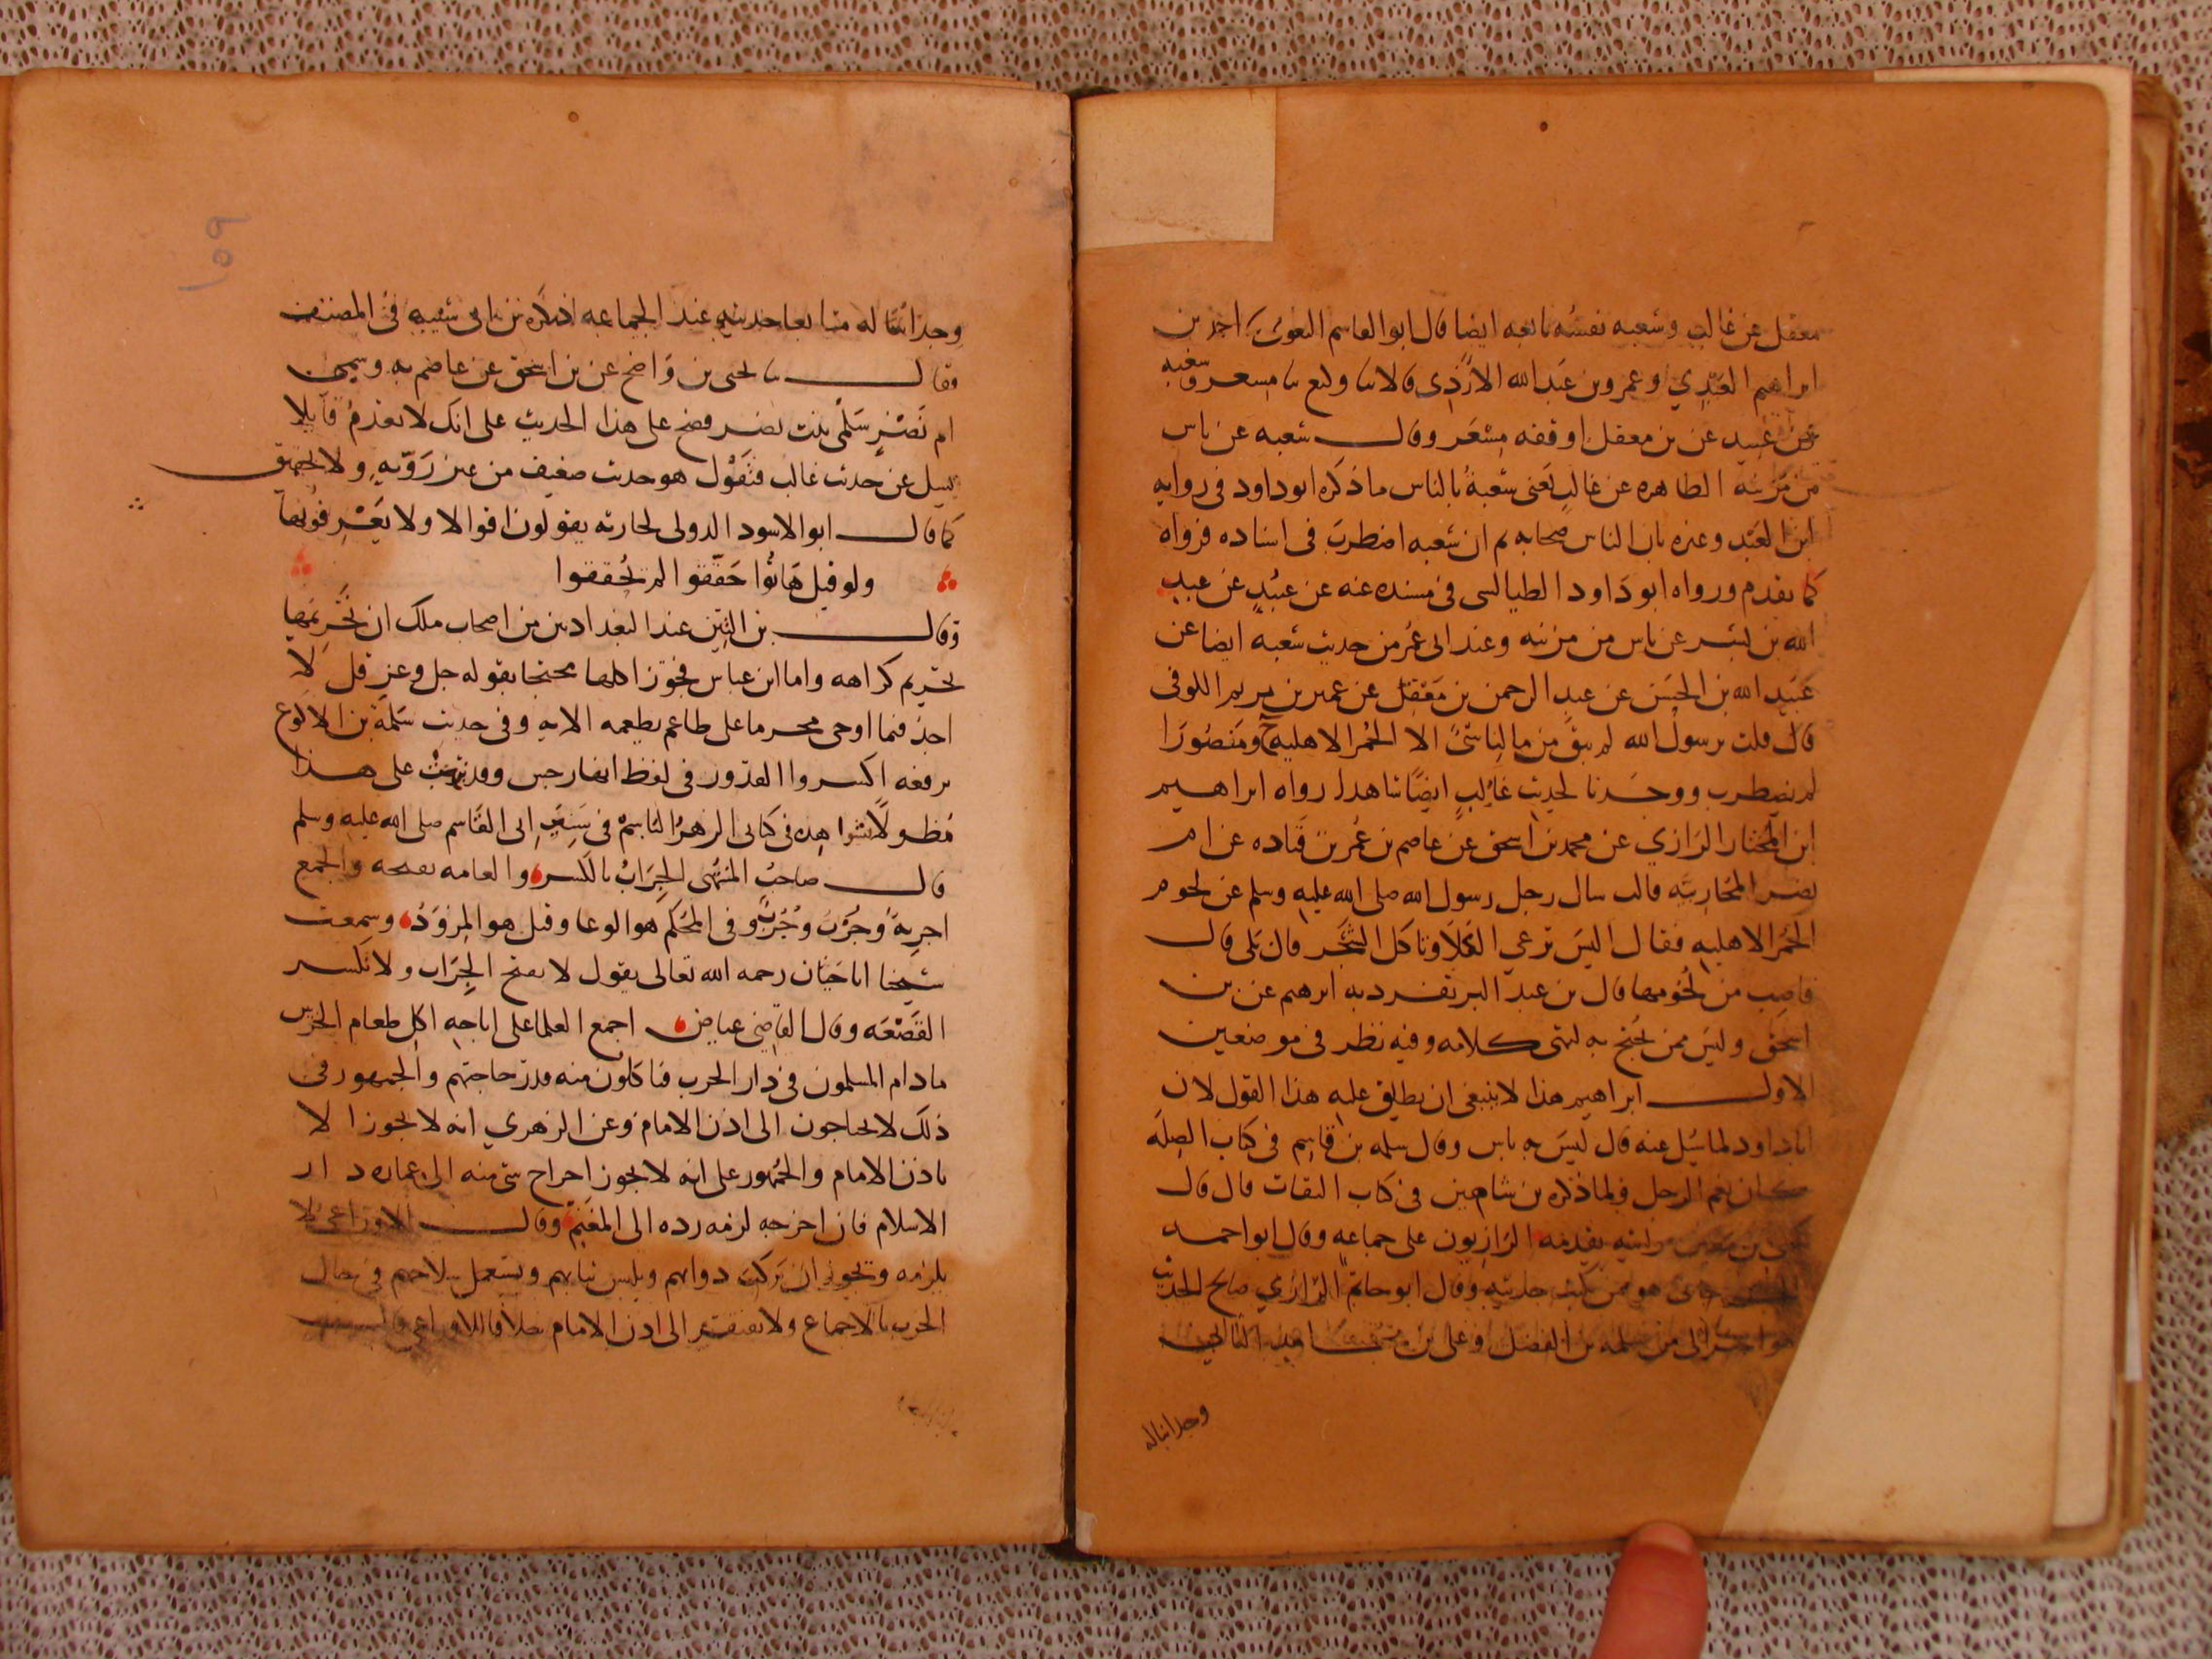 معقل عن غالب وشعبه نفسه تابعه ايضا قال ابو القاسم البغوي احمد بن
ابراهيم العبدي وعمرو بن عبد الله الازدي قالا ثنا وكيع ثنا مسعر وشعبه
عن عبيد عن بن معقل اوقفه مسعر وقال شعبه عن ناس
من مزينه الظاهره عن غالب يعنى شعبة بالناس ما ذكره ابو داود فى روايه
ابن العبد وغيره بان الناس صحابه ثم ان شعبه اضطرب فى اسناده فرواه
كما تقدم ورواه ابو داود الطيالسى فى مسنده عنه عن عبيد عن عبد
الله بن بشر عن ناس من مزينه وعند ابى عمر من حديث شعبه ايضا عن
عبيد الله بن الحسن عن عبد الرحمن بن معقل عن عمير بن نويم اللوفى
قال قلت يرسول الله لم يبق من مالنا شىٔ الا الحمر الاهليه ومنصورا
لم يضطرب ووجدنا لحديث غالب ايضا شاهدا رواه ابراهيم
ابن المختار الرازي عن محمد بن اسحق عن عاصم بن عمر بن قتاده عن ام
نصر المحاربيه قالت سال رجل رسول الله صلى الله عليه وسلم عن لحوم
الحمر الاهليه فقال اليس ترعي الكلا وتاكل الشجر قال بلى قال
فاصب من لحومها قال بن عبد البر تفرد به ابرهيم عن بن
اسحق وليس ممن يحتج به انتهى كلامه وفيه نظر فى موضعين
الاول ابراهيم هذا لا ينبغى ان يطلق عليه هذا القول لان
ابا داود لما سئل عنه قال ليس به باس وقال مسلمه بن قاسم فى كتاب الصله
كان نعم الرجل ولما ذكره بن شاهين فى كتاب الثقات قال قال
بن معين يقدمه الرازيون على جماعه وقال ابو احمد
هو ممن يكتب حديثه وقال ابو حاتم الرازي صالح الحديث
هو احب الى من سلمه بن الفضل وعلى بن مجاهد الثانى
وجدانا له
وجدانا له متابعا حديثه عند الجماعه اذ ذكره بن ابى شيبه فى المصنف
وقال ثنا يحيى بن واضح عن بن اسحق عن عاصم به وسمى
ام نصر سلمى بنت نصر فصح على هذا الحديث على انك لا تعدم قايلا
يسيل عن حديث غالب فيقول هو حديث ضعيف من غير رويه ولا تحقيق
كما قال ابو الاسود الدولى لحارثه يقولون اقوالا ولا يعرفونها
ولو قيل هاتوا حققوا لم يحققوا
وقال بن التين عند البغداديين من اصحاب ملك ان تحريمها
تحريم كراهه واما ابن عباس فجوز اكلها محتجا بقوله جل وعز قل لا
اجد فيما اوحى محرما على طاعم يطعمه الايه وفى حديث سلمة بن الاكوع
يرفعه اكسروا القدور فى لفظ انها رجس وقد نبهت على هذا
مطولا بشواهده فى كتابى الزهر الباسم فى سير ابى القاسم صلى الله عليه وسلم
قال صاحب المنتهى الجراب بالكسر والعامه تفتحه والجمع
اجربة وجرب وجرب وفى المحكم هو الوعا وقيل هو المزود وسمعت
شيخنا ابا حيان رحمه الله تعالى يقول لا تفتح الجراب ولا تكسر
القصعه وقال القاضي عياض اجمع العلما على اباحه اكل طعام الحربى
ما دام المسلمون فى دار الحرب فياكلون منه قدر حاجتهم والجمهور فى
ذلك لا يحتاجون الى اذن الامام وعن الزهري انه لا يجوز الا
باذن الامام والجمهور على انه لا يجوز اخراج شى منه الى عماره دار
الاسلام فان اخرجه لزمه رده الى المغنم وقال الاوزاعي لا
يلزمه ويجوز ان يركب دوابهم ويلبس ثيابهم ويستعمل سلاحهم فى حال
الحرب بالاجماع ولا يفتقر الى اذن الامام خلافا للاوزاعي